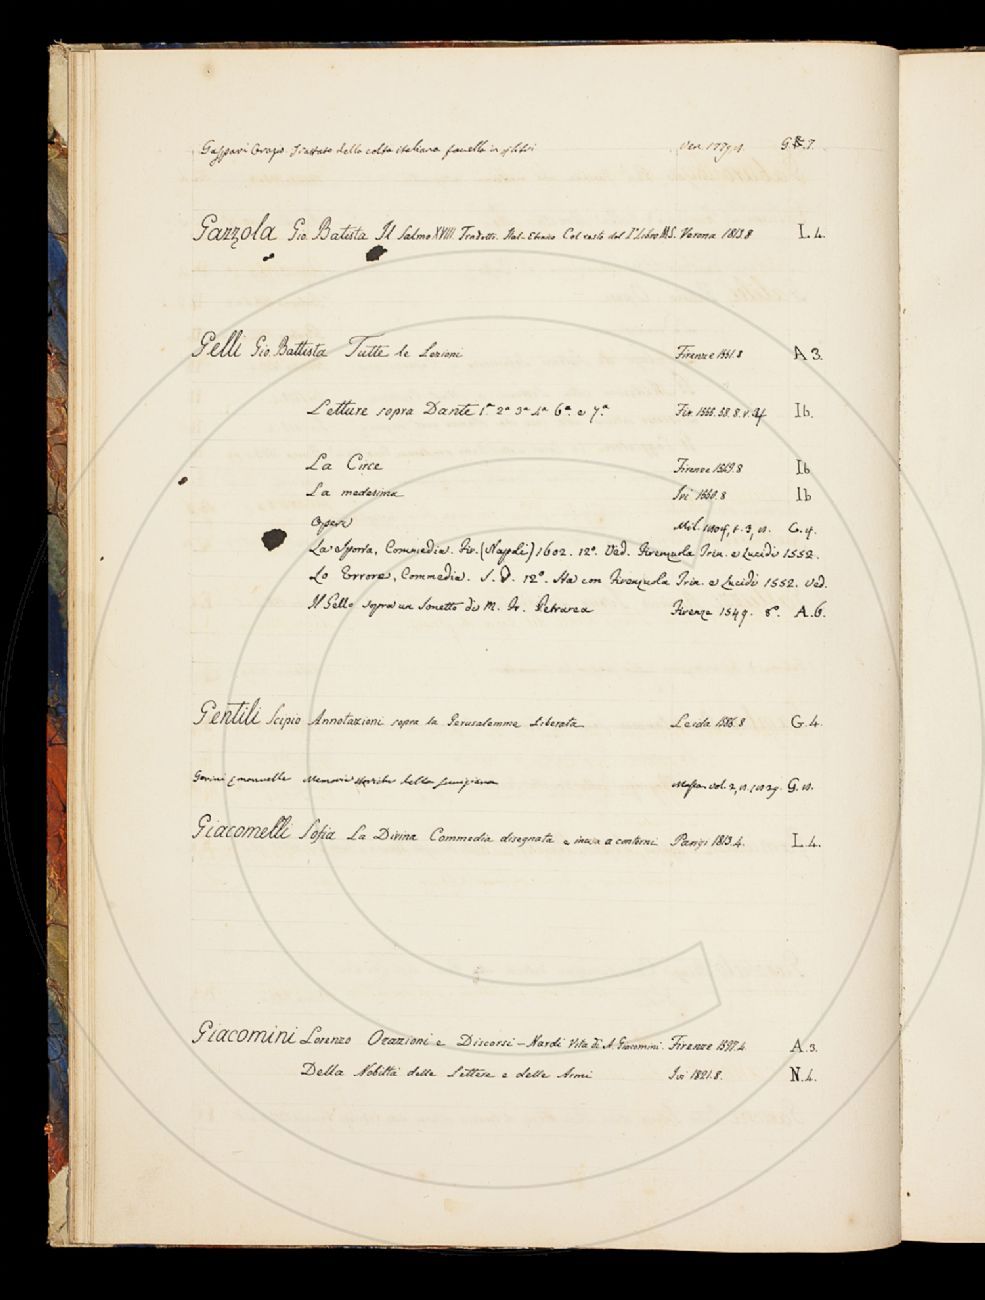 Gaspari Trattato della colta italiana favella in libri Ven.
Gazzola Gio. Batista Il Salmo XVIII Tradott. Ital-Ebraico Col resto del I° Libro M.S. Verona 1813.8 L. 4.
Gelli Gio. Battista Tutte le Lezioni Firenze 1551.8 A 3.
Letture sopra Dante 1ª 2ª 3ª 4ª 6ª e 7ª Fir. 8. v. Ib.
La Circe Firenze 1549.8 Ib
La medesima Ivi 8 Ib
Opere Mil. t. 3, G. 4.
La Sporta, Commedia. Fir. (Napoli) 1602. 12°. Ved. Firenzuola Trin. e Lucidi 1552.
Lo Errore, Commedia. S. D. 12°. Sta con Firenzuola Trin. e Lucidi 1552. Ved.
Il Gello sopra un Sonetto di M. Fr. Petrarca Firenze 1549. 8°. A. 6.
Gentili Scipio Annotazioni sopra la Gerusalemme Liberata Leida 1586.8 G. 4.
Gerini Emanuelle Memorie Storiche della Lunigiana Massa vol. 2, G.
Giacomelli Sofia La Divina Commedia disegnata e incisa a contorni Parigi 1813.4. L. 4.
Giacomini Lorenzo Orazioni e Discorsi – Nardi Vita di A. Giacomini. Firenze 1597.4 A. 3.
Della Nobiltà delle Lettere e delle Armi Ivi 1821.8. N. 4.
C